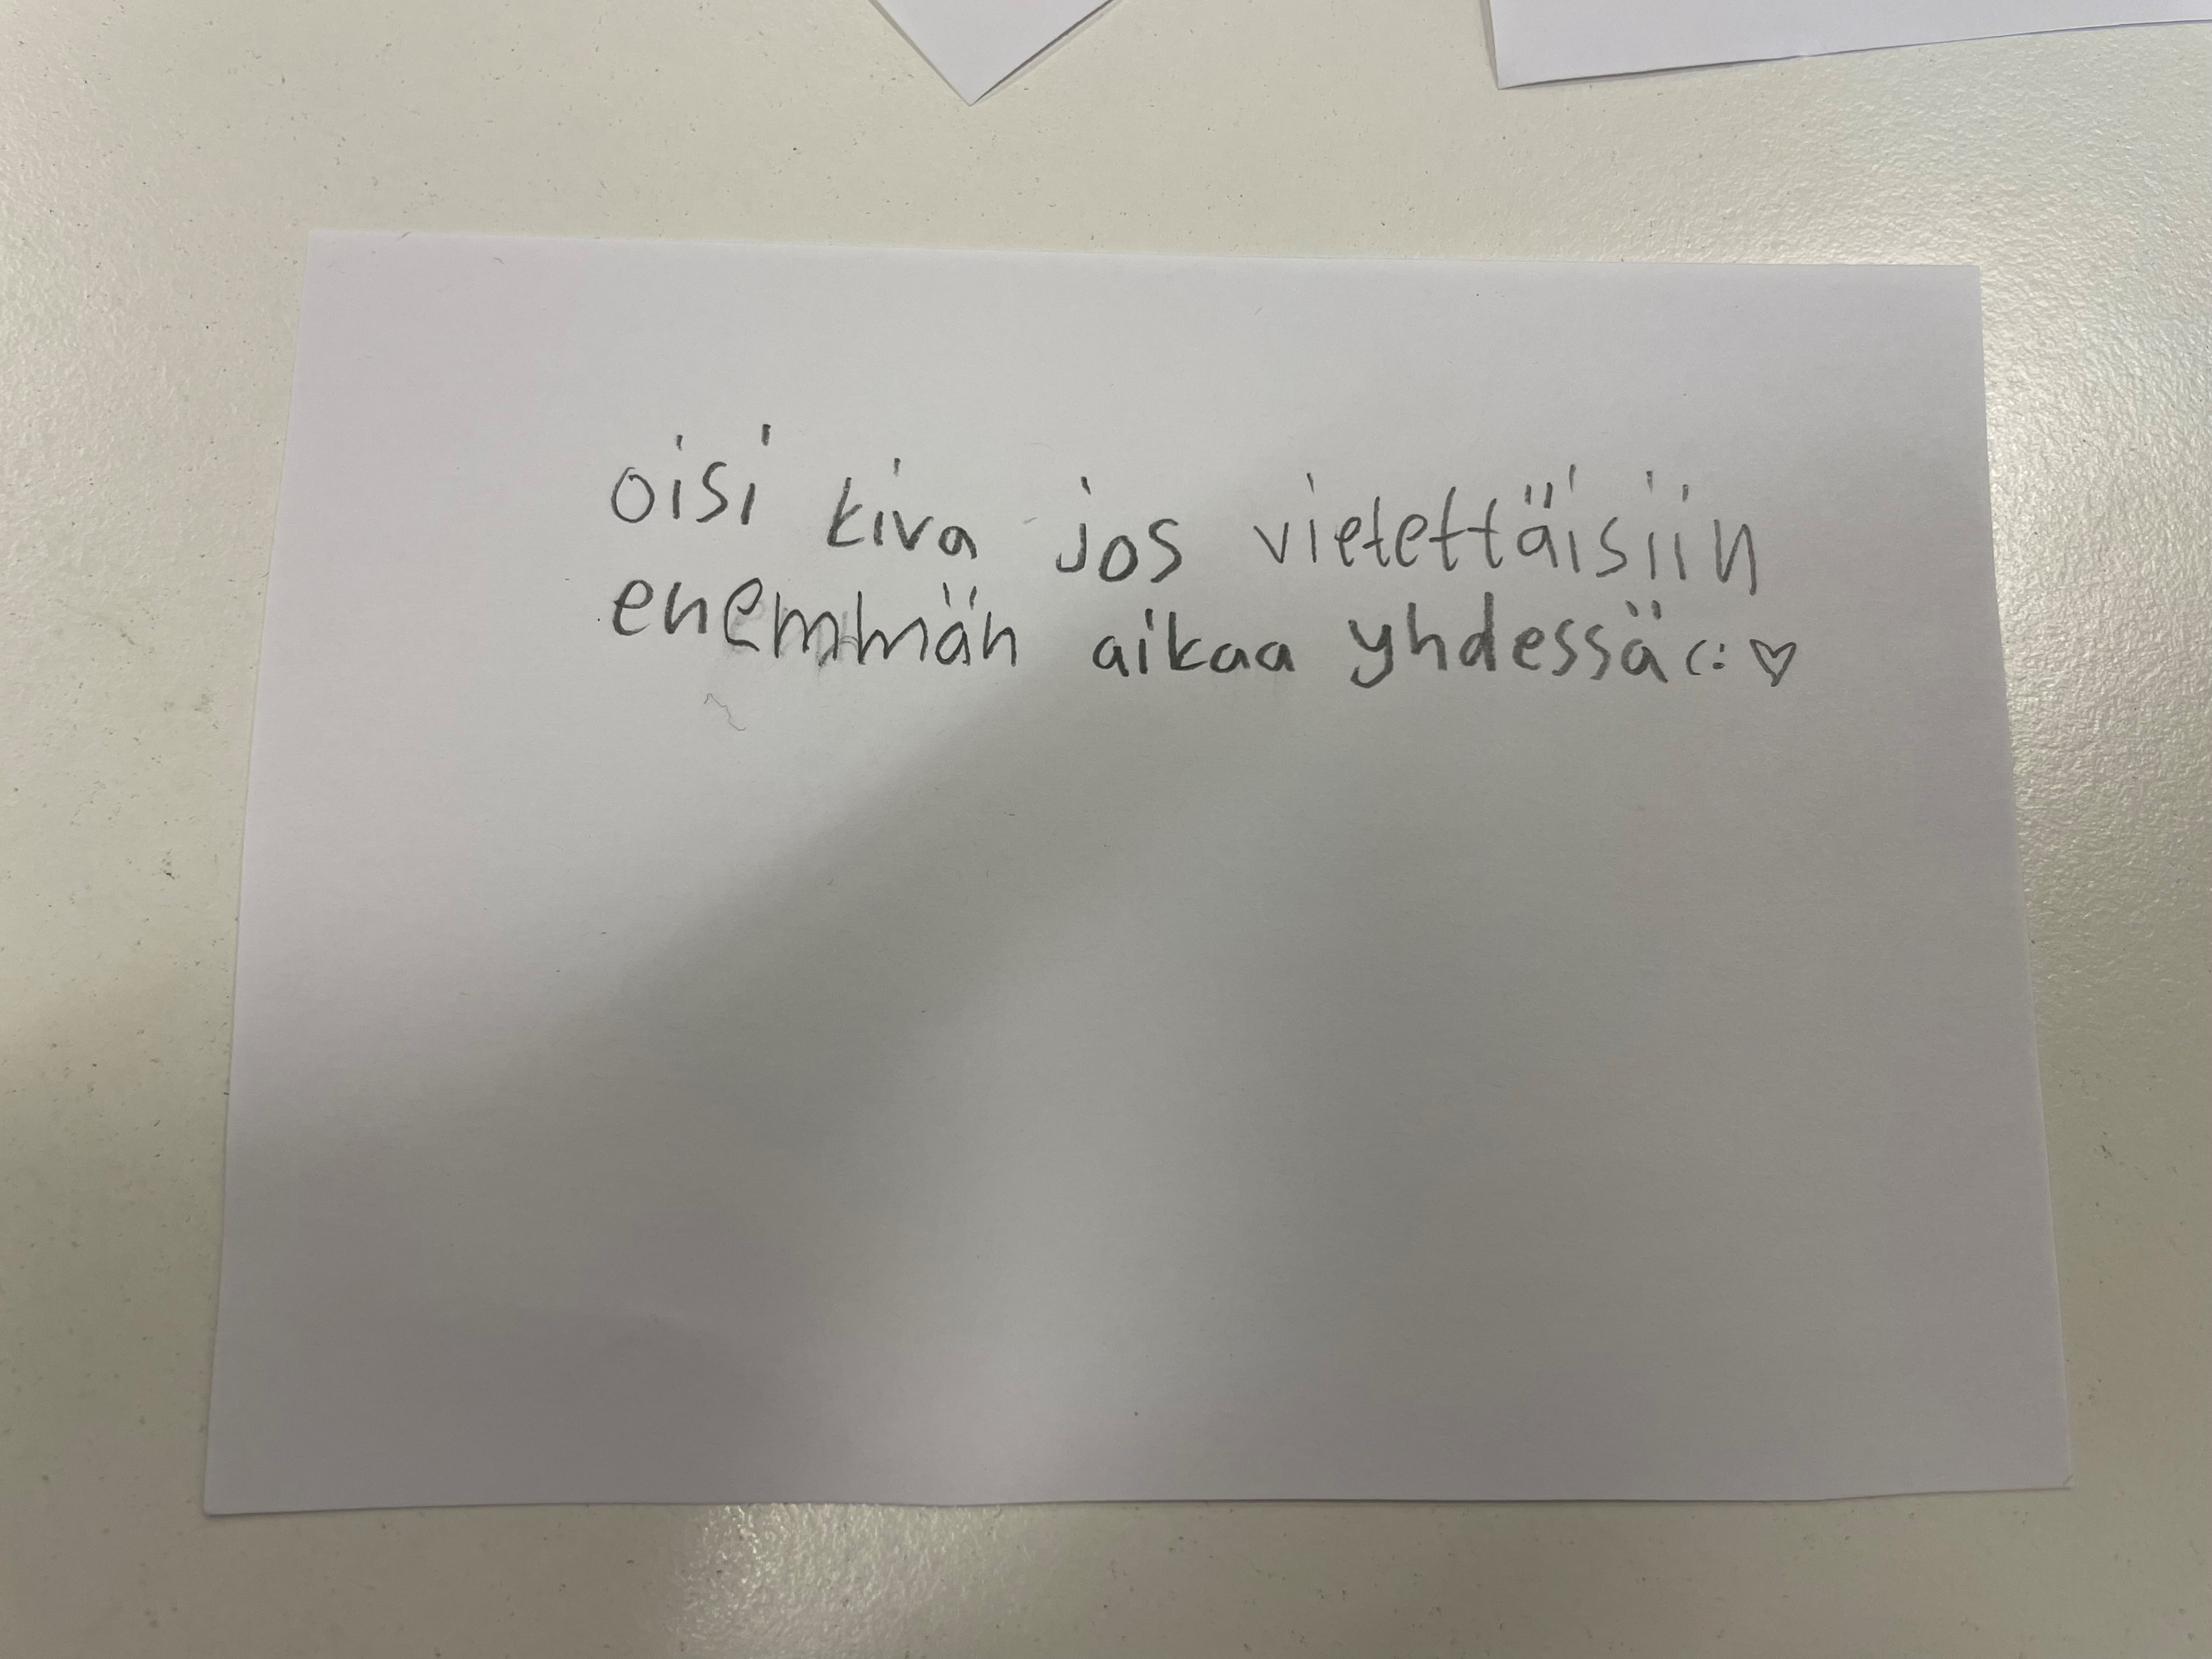 oisi kiva jos vietettäisiin
enemmän aikaa yhdessä c: ♡